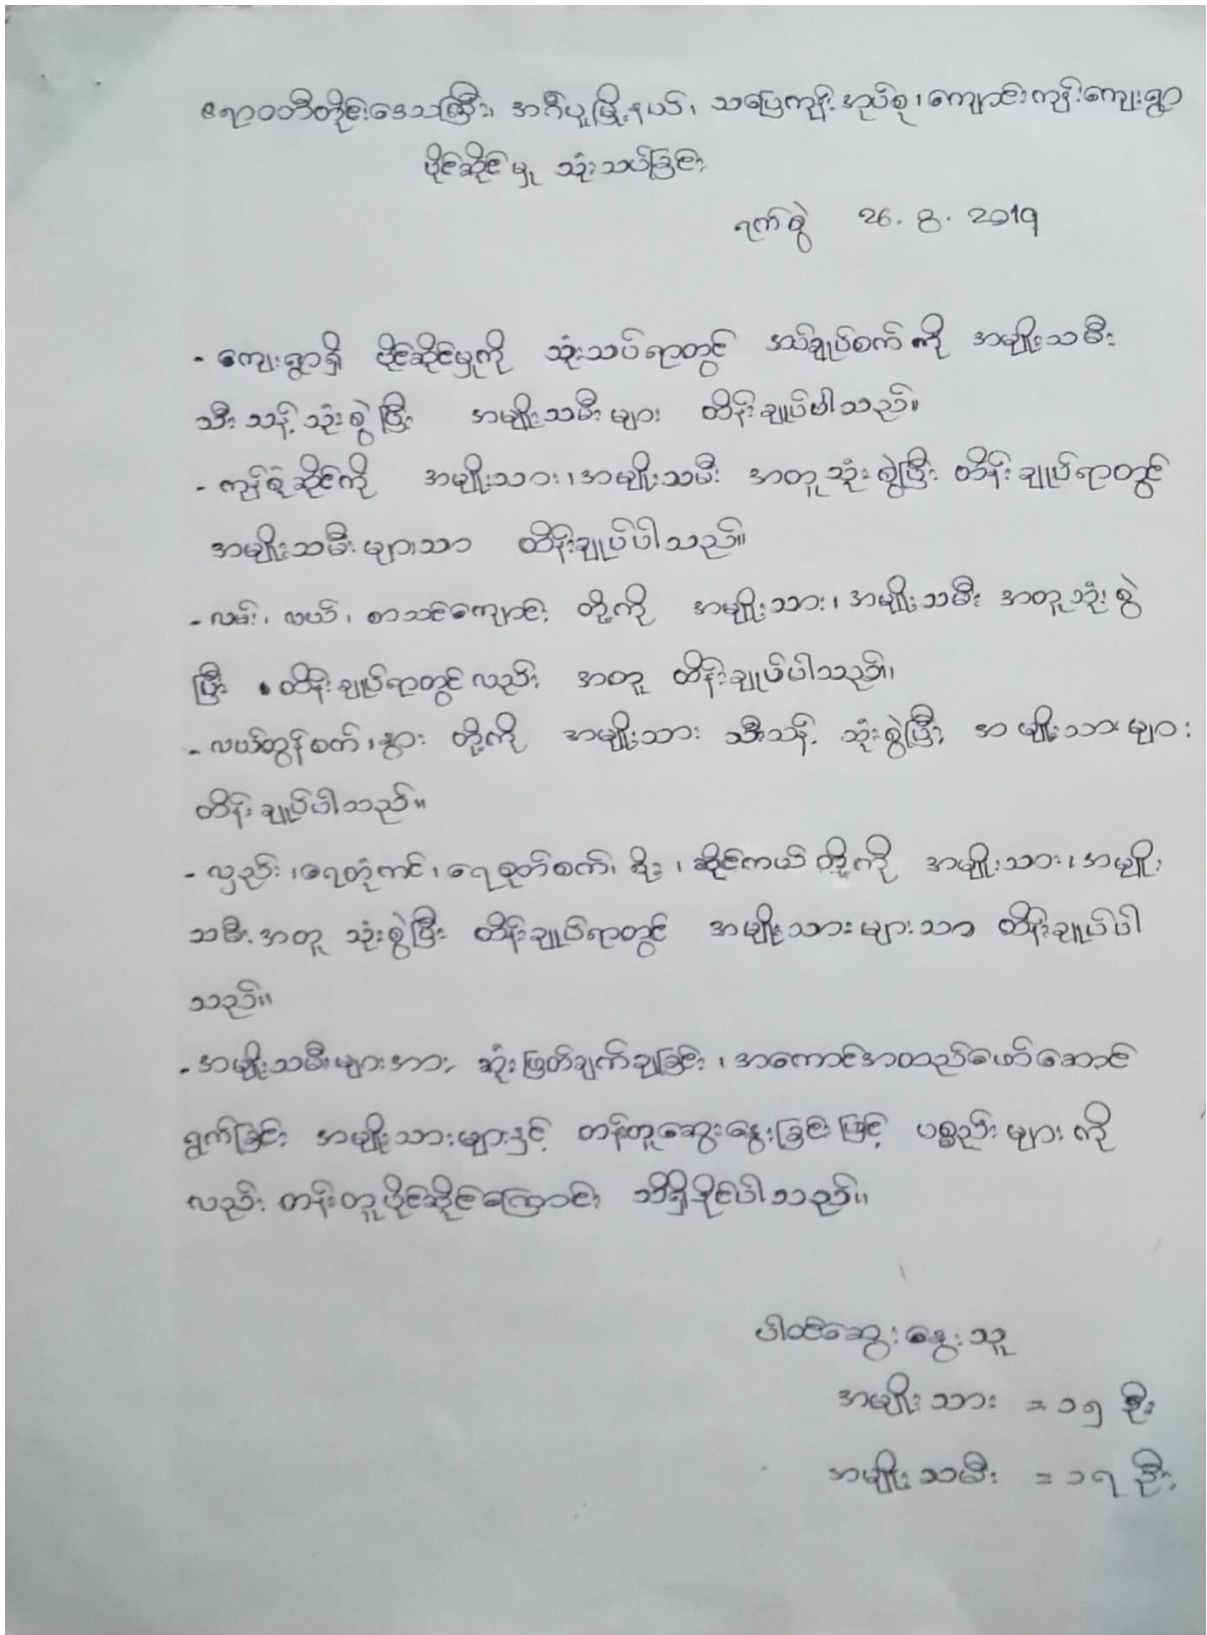 ဧရာဝတီတိုင်းဒေသကြီး၊ အင်္ဂပူမြို့နယ်၊ သပြေကုန်းအုပ်စု၊ ကျောင်းကုန်းကျေးရွာ
ပိုင်ဆိုင်မှု သုံးသပ်ခြင်း
ရက်စွဲ 26.8.2019
- ကျေးရွာရှိ ပိုင်ဆိုင်မှုကို သုံးသပ်ရာတွင် အပ်ချုပ်စက်ကို အမျိုးသမီး
သီးသန့်သုံးစွဲပြီး အမျိုးသမီးများ ထိန်းချုပ်ပါသည်။
- ကုန်စုံဆိုင်ကို အမျိုးသား၊ အမျိုးသမီး အတူသုံးစွဲပြီး ထိန်းချုပ်ရာတွင်
အမျိုးသမီးများသာ ထိန်းချုပ်ပါသည်။
- လမ်း၊ လယ်၊ စာသင်ကျောင်း တို့ကို အမျိုးသား၊ အမျိုးသမီး အတူသုံးစွဲ
ပြီး ထိန်းချုပ်ရာတွင်လည်း အတူ ထိန်းချုပ်ပါသည်။
- လယ်ထွန်စက်၊ နွား တို့ကို အမျိုးသား သီးသန့် သုံးစွဲပြီး အမျိုးသားများ
ထိန်းချုပ်ပါသည်။
- လှည်း၊ ရေတုံကင်၊ ရေစုတ်စက်၊ ဒိုး၊ ဆိုင်ကယ်တို့ကို အမျိုးသား၊ အမျိုး
သမီး အတူ သုံးစွဲပြီး ထိန်းချုပ်ရာတွင် အမျိုးသားများသာ ထိန်းချုပ်ပါ
သည်။
- အမျိုးသမီးများအား ဆုံးဖြတ်ချက်ချခြင်း၊ အကောင်အထည်ဖော်ဆောင်
ရွက်ခြင်း အမျိုးသားများနှင့် တန်းတူဆွေးနွေးခြင်းဖြင့် ပစ္စည်းများကို
လည်း တန်းတူပိုင်ဆိုင်ကြောင်း သိရှိနိုင်ပါသည်။
ပါဝင်ဆွေးနွေးသူ
အမျိုးသား = ၁၅ ဦး
အမျိုးသမီး = ၁၇ ဦး